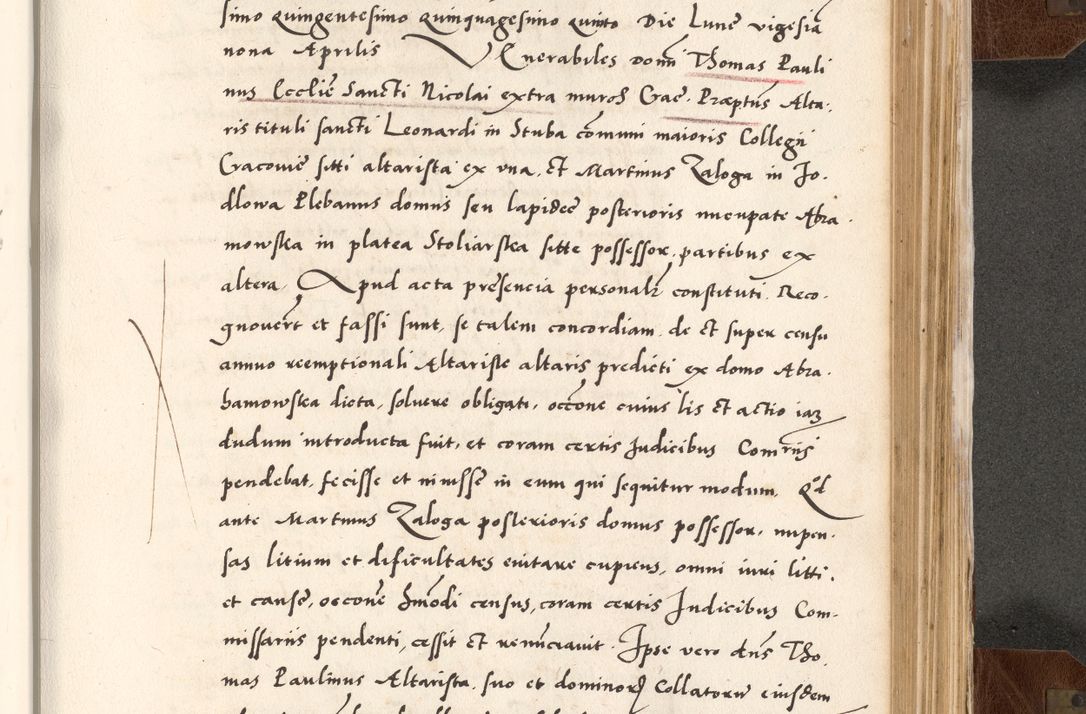 simo quingentesimo quinquagesimo quinto Die Lune vigesia
nona Aprilis Venerabiles domi Thomas Pauli
nus Ecclie Sancti Nicolai extra muros Crac. Præptus Alta.
ris tituli sancti Leonardi in Stuba comuni maioris Collegii
Cracovie sitti altarista ex vna, et Martinus Zaloga in Jo.
dlowa Plebanus domus seu lapidee posterioris nucupate Abra.
mowska in platea Stoliarska sitte possessor, partibus ex
altera. Apud acta presencia personalr constituti. Reco.
gnovert et fassi sunt, se talem concordiam, de et super censu
annuo reemptionali Altariste altaris predicti ex domo Abra.
hamowska dicta, soluere obligati, occone cuius lis et actio iaz
dudum introducta fuit, et coram certis Judicibus Comriis
pendebat, fecisse et inivisse in eum qui sequitur modum, Qd
ante Martinus Zaloga posterioris domus possessor, inpen.
sas litium et dificultates euitare cupiens, omni iuri litti.
et cause, occone hmodi census, coram certis Judicibus Com-
missariis pendenti, cessit et renunciauit. Ipse vero dns Tho.
mas Paulinus Altarista, suo et dominor Collatoru eiusdem